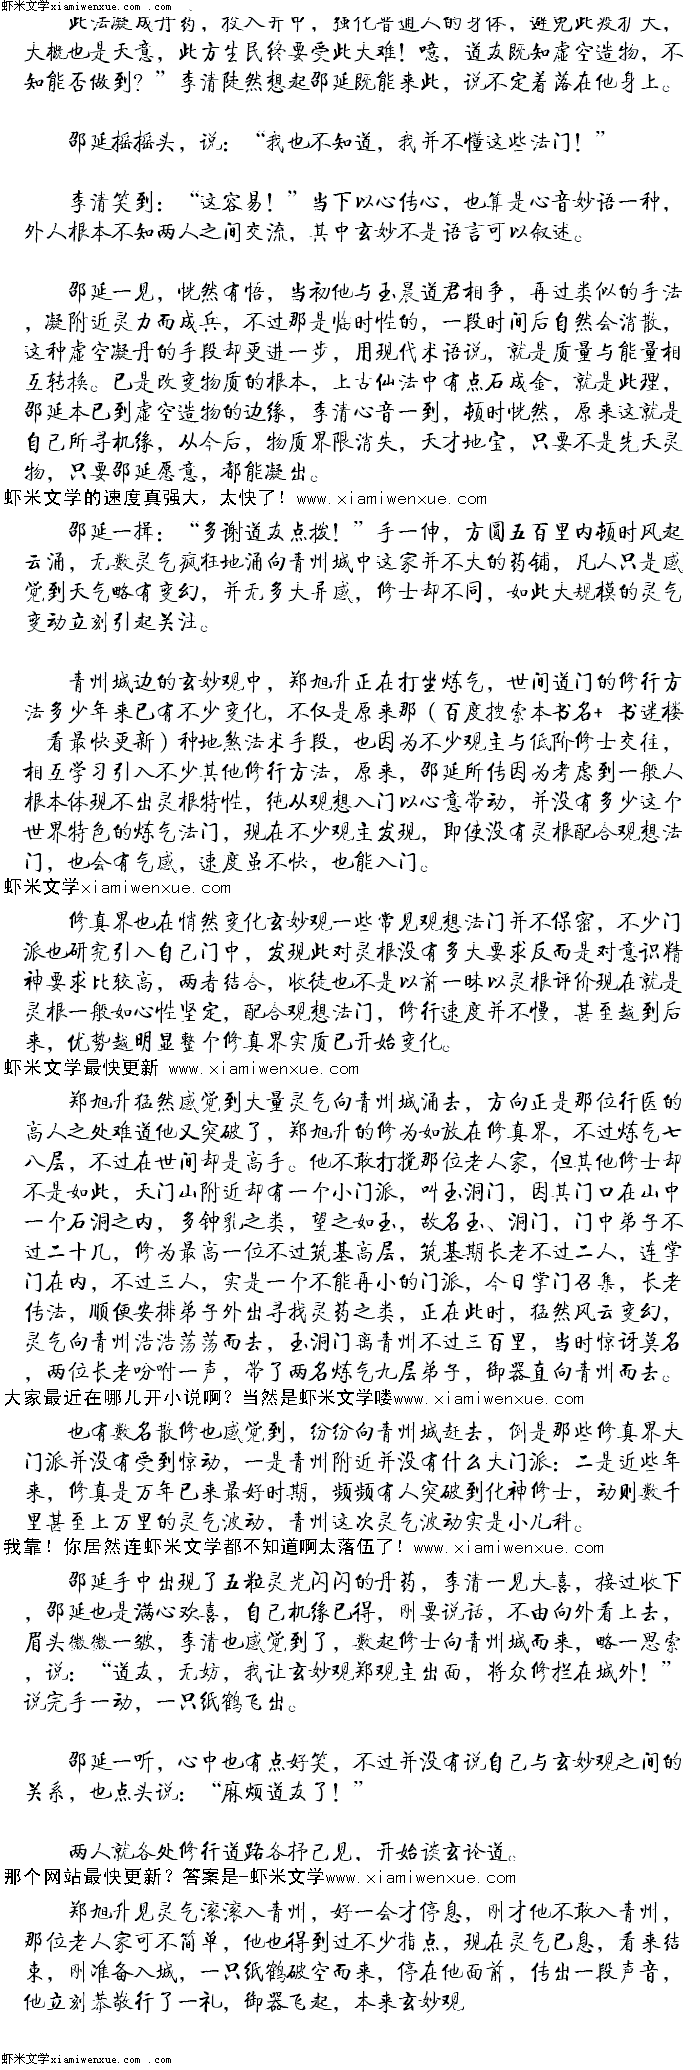 虾米文学xiamiwenxue.com .com
此法凝成丹药，投入井中，强化普通人的身体，避免此疫扩大，
大概也是天意，此方生民终要受此大难！噫，道友既知虚空造物，不
知能否做到？”李清陡然想起邵延既能来此，说不定着落在他身上。
邵延摇摇头，说：“我也不知道，我并不懂这些法门！”
李清笑到：“这容易！”当下以心传心，也算是心音妙语一种，
外人根本不知两人之间交流，其中玄妙不是语言可以叙述。
邵延一见，恍然有悟，当初他与玉晨道君相争，再过类似的手法
，凝附近灵力而成兵，不过那是临时性的，一段时间后自然会消散，
这种虚空凝丹的手段却更进一步，用现代术语说，就是质量与能量相
互转换。已是改变物质的根本，上古仙法中有点石成金，就是此理，
邵延本已到虚空造物的边缘，李清心音一到，顿时恍然，原来这就是
自己所寻机缘，从今后，物质界限消失，天才地宝，只要不是先天灵
物，只要邵延愿意，都能凝出。
虾米文学的速度真强大，太快了！www.xiamiwenxue.com
邵延一揖：“多谢道友点拨！”手一伸，方圆五百里内顿时风起
云涌，无数灵气疯狂地涌向青州城中这家并不大的药铺，凡人只是感
觉到天气略有变幻，并无多大异感，修士却不同，如此大规模的灵气
变动立刻引起关注。
青州城边的玄妙观中，郑旭升正在打坐炼气，世间道门的修行方
法多少年来已有不少变化，不仅是原来那（百度搜索本书名+ 书迷楼
看最快更新）种地煞法术手段，也因为不少观主与低阶修士交往，
相互学习引入不少其他修行方法，原来，邵延所传因为考虑到一般人
根本体现不出灵根特性，纯从观想入门以心意带动，并没有多少这个
世界特色的炼气法门，现在不少观主发现，即使没有灵根配合观想法
门，也会有气感，速度虽不快，也能入门。
虾米文学xiamiwenxue.com
修真界也在悄然变化玄妙观一些常见观想法门并不保密，不少门
派也研究引入自己门中，发现此对灵根没有多大要求反而是对意识精
神要求比较高，两者结合，收徒也不是以前一昧以灵根评价现在就是
灵根一般如心性坚定，配合观想法门，修行速度并不慢，甚至越到后
来，优势越明显整个修真界实质已开始变化。
虾米文学最快更新 www.xiamiwenxue.com
郑旭升猛然感觉到大量灵气向青州城涌去，方向正是那位行医的
高人之处难道他又突破了，郑旭升的修为如放在修真界，不过炼气七
八层，不过在世间却是高手。他不敢打搅那位老人家，但其他修士却
不是如此，天门山附近却有一个小门派，叫玉洞门，因其门口在山中
一个石洞之内，多钟乳之类，望之如玉，故名玉、洞门，门中弟子不
过二十几，修为最高一位不过筑基高层，筑基期长老不过二人，连掌
门在内，不过三人，实是一个不能再小的门派，今日掌门召集，长老
传法，顺便安排弟子外出寻找灵药之类，正在此时，猛然风云变幻，
灵气向青州浩浩荡荡而去，玉洞门离青州不过三百里，当时惊讶莫名
，两位长老吩咐一声，带了两名炼气九层弟子，御器直向青州而去。
大家最近在哪儿开小说啊？当然是虾米文学喽www.xiamiwenxue.com
也有数名散修也感觉到，纷纷向青州城赶去，倒是那些修真界大
门派并没有受到惊动，一是青州附近并没有什么大门派：二是近些年
来，修真是万年已来最好时期，频频有人突破到化神修士，动则数千
里甚至上万里的灵气波动，青州这次灵气波动实是小儿科。
我靠！你居然连虾米文学都不知道啊太落伍了！www.xiamiwenxue.com
邵延手中出现了五粒灵光闪闪的丹药，李清一见大喜，接过收下
，邵延也是满心欢喜，自己机缘已得，刚要说话，不由向外看上去，
眉头微微一皱，李清也感觉到了，数起修士向青州城而来，略一思索
，说：“道友，无妨，我让玄妙观郑观主出面，将众修拦在城外！”
说完手一动，一只纸鹤飞出。
邵延一听，心中也有点好笑，不过并没有说自己与玄妙观之间的
关系，也点头说：“麻烦道友了！”
两人就各处修行道路各抒己见，开始谈玄论道。
那个网站最快更新？答案是-虾米文学www.xiamiwenxue.com
郑旭升见灵气滚滚入青州，好一会才停息，刚才他不敢入青州，
那位老人家可不简单，他也得到过不少指点，现在灵气已息，看来结
束，刚准备入城，一只纸鹤破空而来，停在他面前，传出一段声音，
他立刻恭敬行了一礼，御器飞起，本来玄妙观
虾米文学xiamiwenxue.com .com